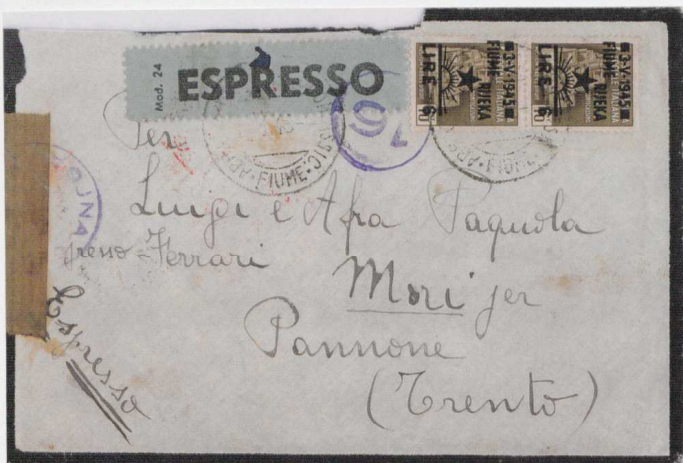 Mod. 24
ESPRESSO
3-V-1945
FIUME RIJEKA
LIRE 6
3-V-1945
FIUME RIJEKA
LIRE 6
FIUME
FIUME
Per
Luigi e Afra Paquola
presso - Ferrari
Mori per
Pannone
(Trento)
Espresso